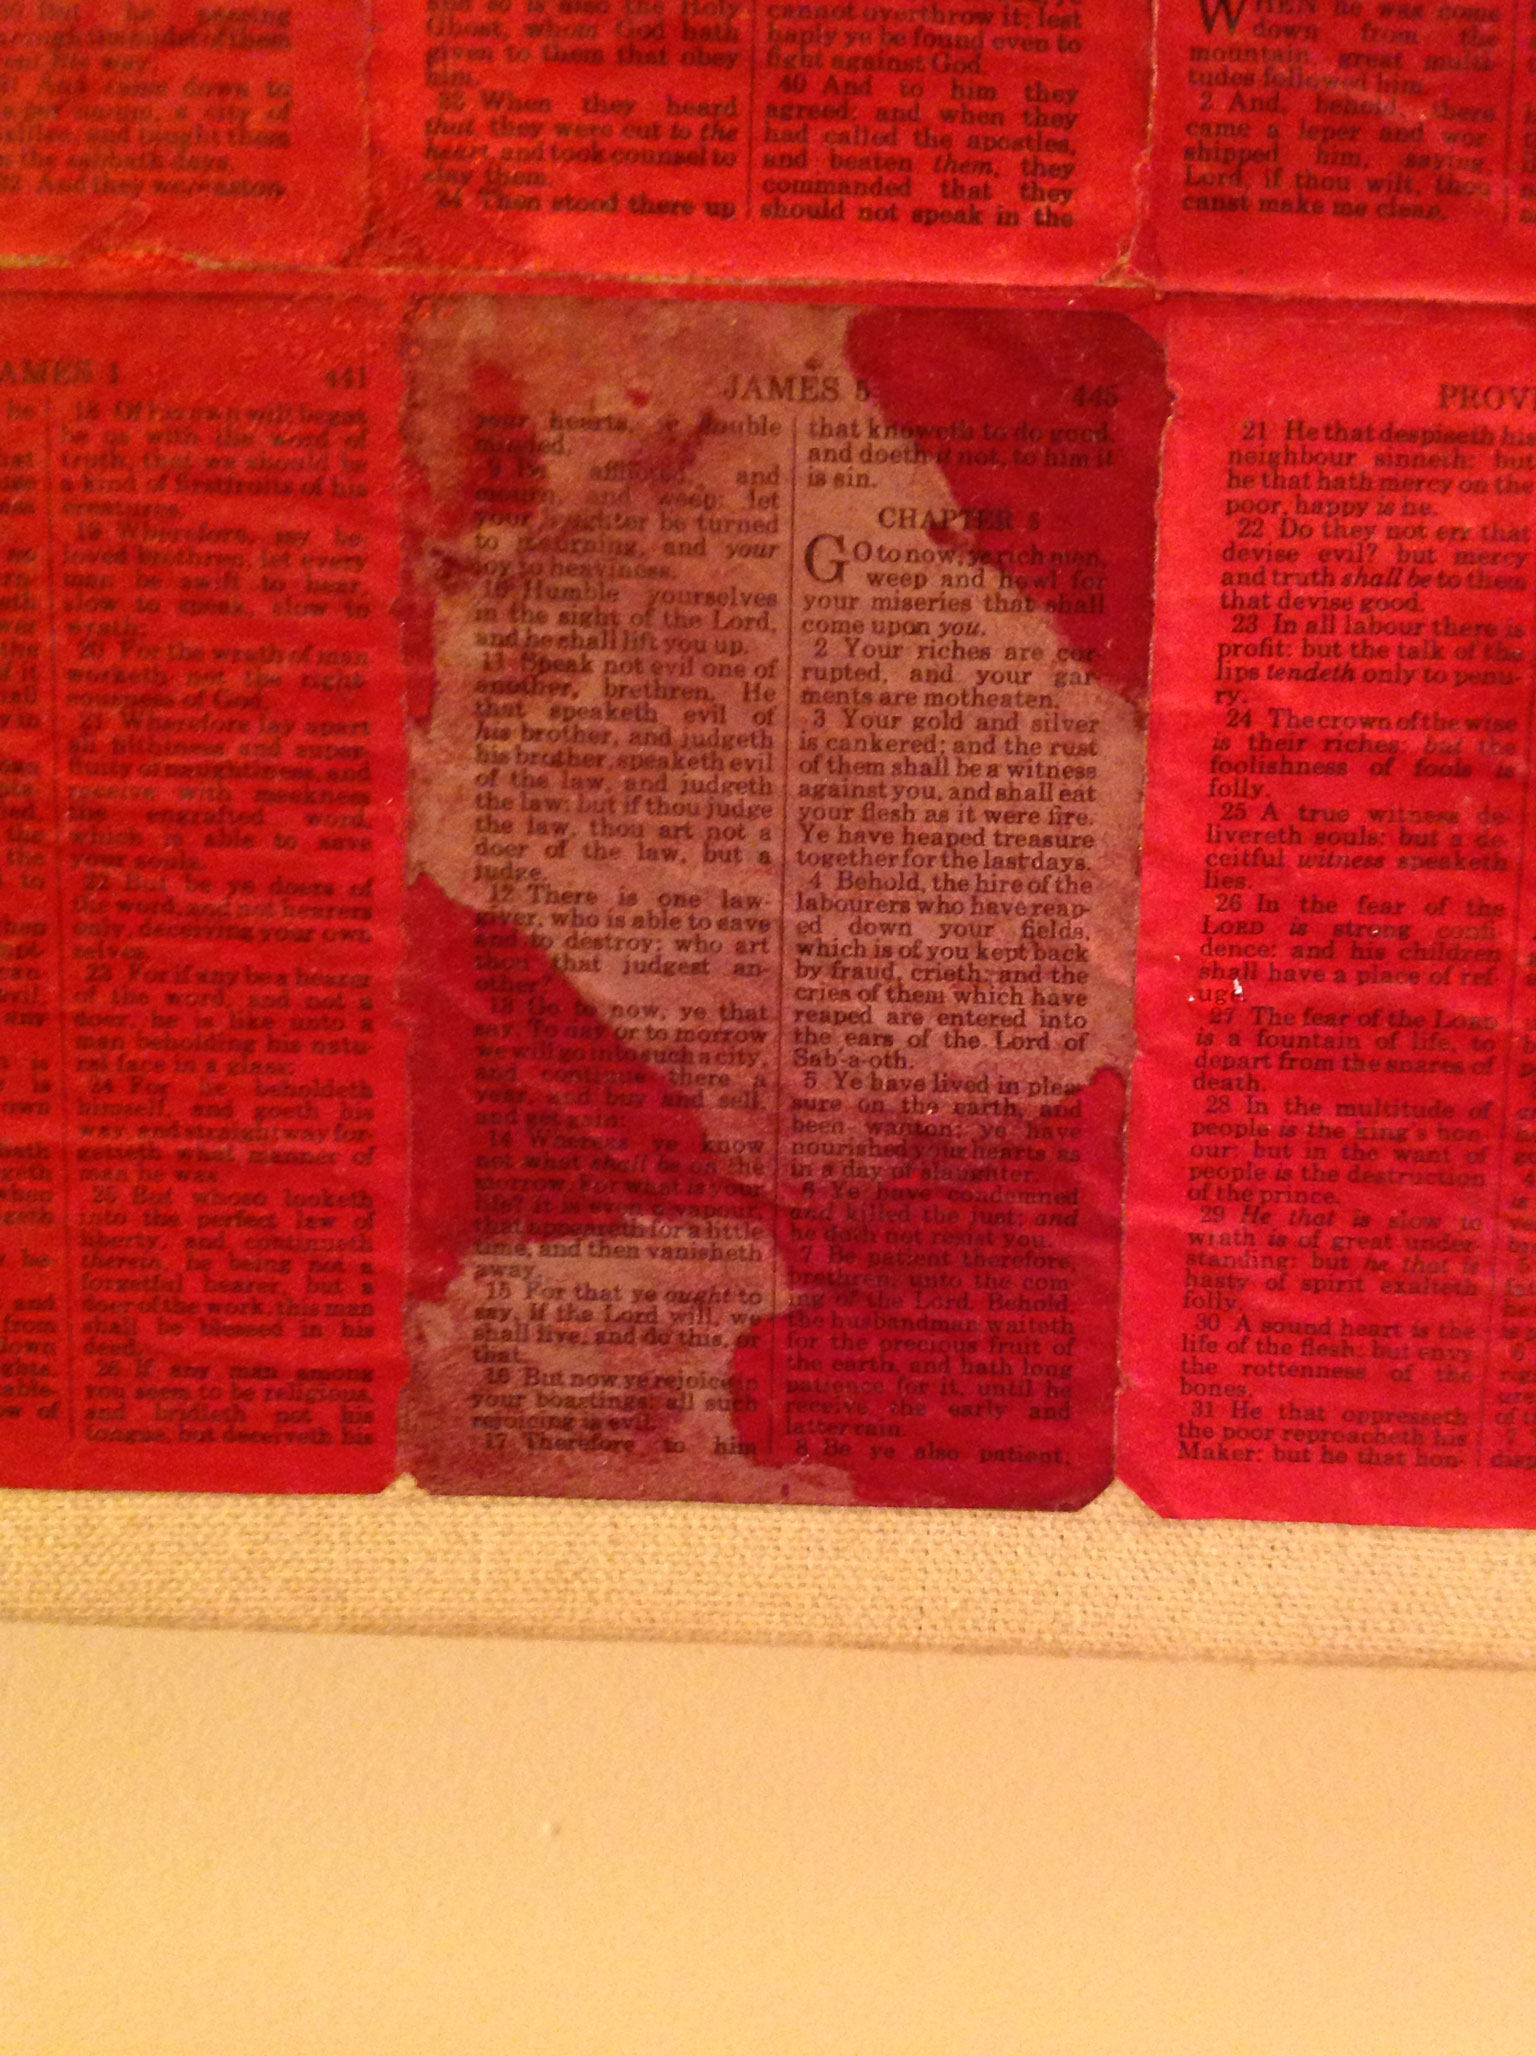 given to them that obey
him.
33 When they heard
that, they were cut to the
heart, and took counsel to
slay them.
34 Then stood there up
cannot overthrow it; lest
haply ye be found even to
fight against God.
40 And to him they
agreed: and when they
had called the apostles,
and beaten them, they
commanded that they
should not speak in the
WHEN he was come
down from the
mountain, great multi-
tudes followed him.
2 And, behold, there
came a leper and wor-
shipped him, saying,
Lord, if thou wilt, thou
canst make me clean.
AMES 1 441
18 Of his own will begat
he us with the word of
truth, that we should be
a kind of firstfruits of his
creatures.
19 Wherefore, my be-
loved brethren, let every
man be swift to hear,
slow to speak, slow to
wrath:
20 For the wrath of man
worketh not the right-
eousness of God.
21 Wherefore lay apart
all filthiness and super-
fluity of naughtiness, and
receive with meekness
the engrafted word,
which is able to save
your souls.
22 But be ye doers of
the word, and not hearers
only, deceiving your own
selves.
23 For if any be a hearer
of the word, and not a
doer, he is like unto a
man beholding his natu-
ral face in a glass:
24 For he beholdeth
himself, and goeth his
way, and straightway for-
getteth what manner of
man he was.
25 But whoso looketh
into the perfect law of
liberty, and continueth
therein, he being not a
forgetful hearer, but a
doer of the work, this man
shall be blessed in his
deed.
26 If any man among
you seem to be religious,
and bridleth not his
tongue, but deceiveth his
JAMES 5 445
your hearts, ye double
minded.
9 Be afflicted, and
mourn, and weep: let
your laughter be turned
to mourning, and your
joy to heaviness.
10 Humble yourselves
in the sight of the Lord,
and he shall lift you up.
11 Speak not evil one of
another, brethren. He
that speaketh evil of
his brother, and judgeth
his brother, speaketh evil
of the law, and judgeth
the law: but if thou judge
the law, thou art not a
doer of the law, but a
judge.
12 There is one law-
giver, who is able to save
and to destroy; who art
thou that judgest an-
other?
13 Go to now, ye that
say, To day or to morrow
we will go into such a city,
and continue there a
year, and buy and sell,
and get gain:
14 Whereas ye know
not what shall be on the
morrow. For what is your
life? it is even a vapour,
that appeareth for a little
time, and then vanisheth
away.
15 For that ye ought to
say, If the Lord will, we
shall live, and do this, or
that.
16 But now ye rejoice in
your boastings: all such
rejoicing is evil.
17 Therefore to him
that knoweth to do good,
and doeth it not, to him it
is sin.
CHAPTER 5
GO to now, ye rich men,
weep and howl for
your miseries that shall
come upon you.
2 Your riches are cor-
rupted, and your gar-
ments are motheaten.
3 Your gold and silver
is cankered; and the rust
of them shall be a witness
against you, and shall eat
your flesh as it were fire.
Ye have heaped treasure
together for the last days.
4 Behold, the hire of the
labourers who have reap-
ed down your fields,
which is of you kept back
by fraud, crieth: and the
cries of them which have
reaped are entered into
the ears of the Lord of
Sab-a-oth.
5 Ye have lived in plea-
sure on the earth, and
been wanton; ye have
nourished your hearts as
in a day of slaughter.
6 Ye have condemned
and killed the just; and
he doth not resist you.
7 Be patient therefore,
brethren, unto the com-
ing of the Lord. Behold,
the husbandman waiteth
for the precious fruit of
the earth, and hath long
patience for it, until he
receive the early and
latter rain.
8 Be ye also patient;
PROV
21 He that despiseth his
neighbour sinneth: but
he that hath mercy on the
poor, happy is he.
22 Do they not err that
devise evil? but mercy
and truth shall be to them
that devise good.
23 In all labour there is
profit: but the talk of the
lips tendeth only to penu-
ry.
24 The crown of the wise
is their riches: but the
foolishness of fools is
folly.
25 A true witness de-
livereth souls: but a de-
ceitful witness speaketh
lies.
26 In the fear of the
LORD is strong confi-
dence: and his children
shall have a place of ref-
uge.
27 The fear of the LORD
is a fountain of life, to
depart from the snares of
death.
28 In the multitude of
people is the king's hon-
our: but in the want of
people is the destruction
of the prince.
29 He that is slow to
wrath is of great under-
standing: but he that is
hasty of spirit exalteth
folly.
30 A sound heart is the
life of the flesh: but envy
the rottenness of the
bones.
31 He that oppresseth
the poor reproacheth his
Maker: but he that hon-